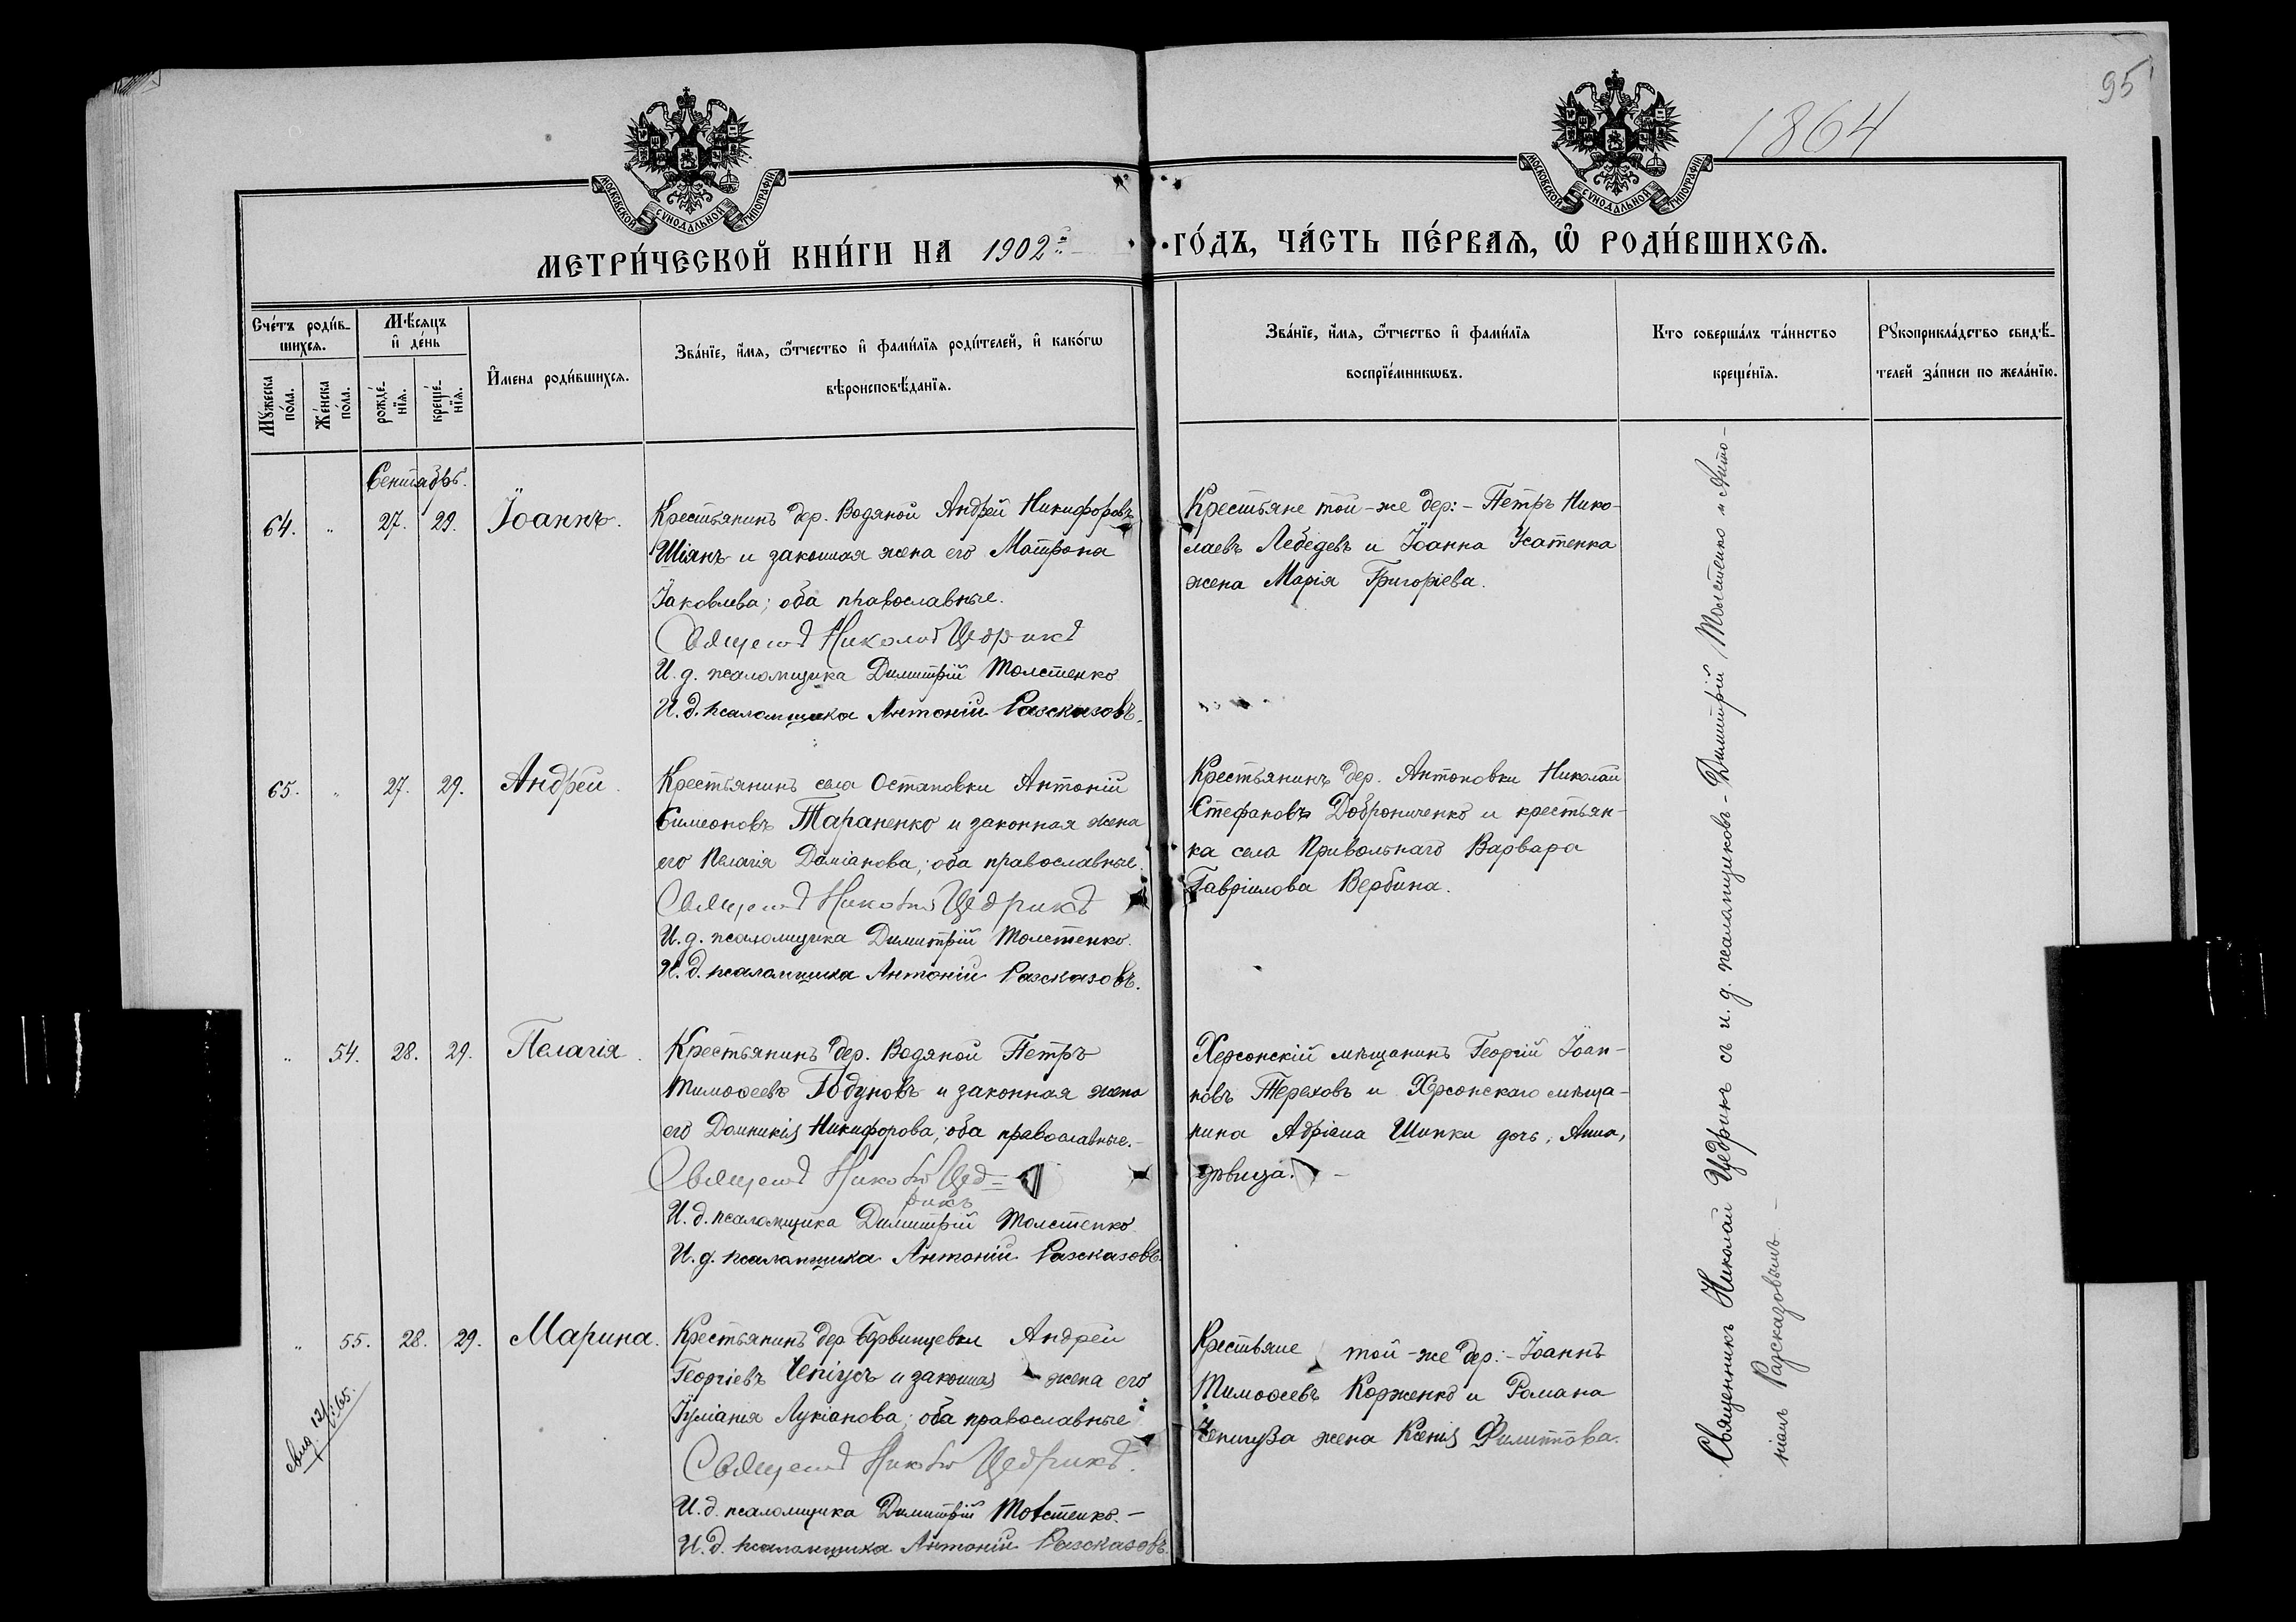 95
1864
МОСКОВСКОЙ СѴНОДАЛЬНОЙ ТИПОГРАФІИ
МОСКОВСКОЙ СѴНОДАЛЬНОЙ ТИПОГРАФІИ
МЕТРИ́ЧЕСКОЙ КНИ́ГИ НА 1902й
ГО́ДЪ, ЧА́СТЬ ПЕ́РВАѦ, Ѡ҆ РОДИ́ВШИХСѦ.
Сче́тъ роди́в-
шихсѧ.
Мѣ́сѧцъ
и҆ де́нь
И҆мена роди́вшихсѧ.
Зва́нїе, и҆́мѧ, ѻ҆́тчество и҆ фами́лїѧ роди́телей, и҆ како́гѡ
вѣроисповѣ́данїѧ.
Мꙋ́жеска по́ла.
Же́нска по́ла.
рожде́-
нїѧ.
креще́-
нїѧ.
Зва́нїе, и҆́мѧ, ѻ҆́тчество и҆ фами́лїѧ
воспрїе́мникѡвъ.
Кто соверша́лъ та́инство
креще́нїѧ.
Рꙋкоприкла́дство свидѣ́-
телей за́писи по жела́нїю.
Сентябрь.
64. " 27. 29. Іоаннъ.
Крестьянинъ дер. Водяной Андрей Никифоровъ
Шіянъ и законная жена его Матрона
Іаковлева; оба православные.
Священникъ Николай Цедрикъ
И. д. псаломщика Димитрій Толстенко
И. д. псаломщика Антоній Разсказовъ.
Крестьяне той-же дер:- Петръ Нико-
лаевъ Лебедевъ и Іоанна Усатенка
жена Марія Григоріева.
65. " 27. 29. Андрей.
Крестьянинъ села Остановки Антоній
Симеоновъ Тараненко и законная жена
его Пелагія Даміанова; оба православные.
Священникъ Николай Цедрикъ
И. д. псаломщика Димитрій Толстенко.
И. д. псаломщика Антоній Разсказовъ.
Крестьянинъ дер. Антоновки Николай
Стефановъ Доброниченко и крестьян-
ка села Привольнаго Варвара
Гавріилова Вербина.
" 54. 28. 29. Пелагія.
Крестьянинъ дер. Водяной Петръ
Тимоѳеевъ Годуновъ и законная жена
его Домникія Никифорова; оба православные.-
Священникъ Николай Цед=
рикъ
И. д. псаломщика Димитрій Толстенко
И. д. псаломщика Антоній Разсказовъ.
Херсонскій мѣщанинъ Георгій Іоан-
новъ Тереховъ и Херсонскаго мѣща-
нина Адріана Шипки дочь, Анна,
дѣвица. -
" 55. 28. 29. Марина.
Крестьянинъ дер. Андрей
Георгіевъ и законная жена его
Іуліанія Лукіанова; оба православные
Священникъ Николай Цедрикъ.
И. д. псаломщика Димитрій Толстенко.-
И. д. псаломщика Антоній Разсказовъ.
Крестьяне той-же дер:- Іоаннъ
Тимоѳеевъ Корженко и Романа
жена Ксенія Филиппова.
Священникъ Николай Цедрикъ съ и. д. псаломщиковъ - Димитрій Толстенко и Анто-
ніемъ Разсказовымъ -